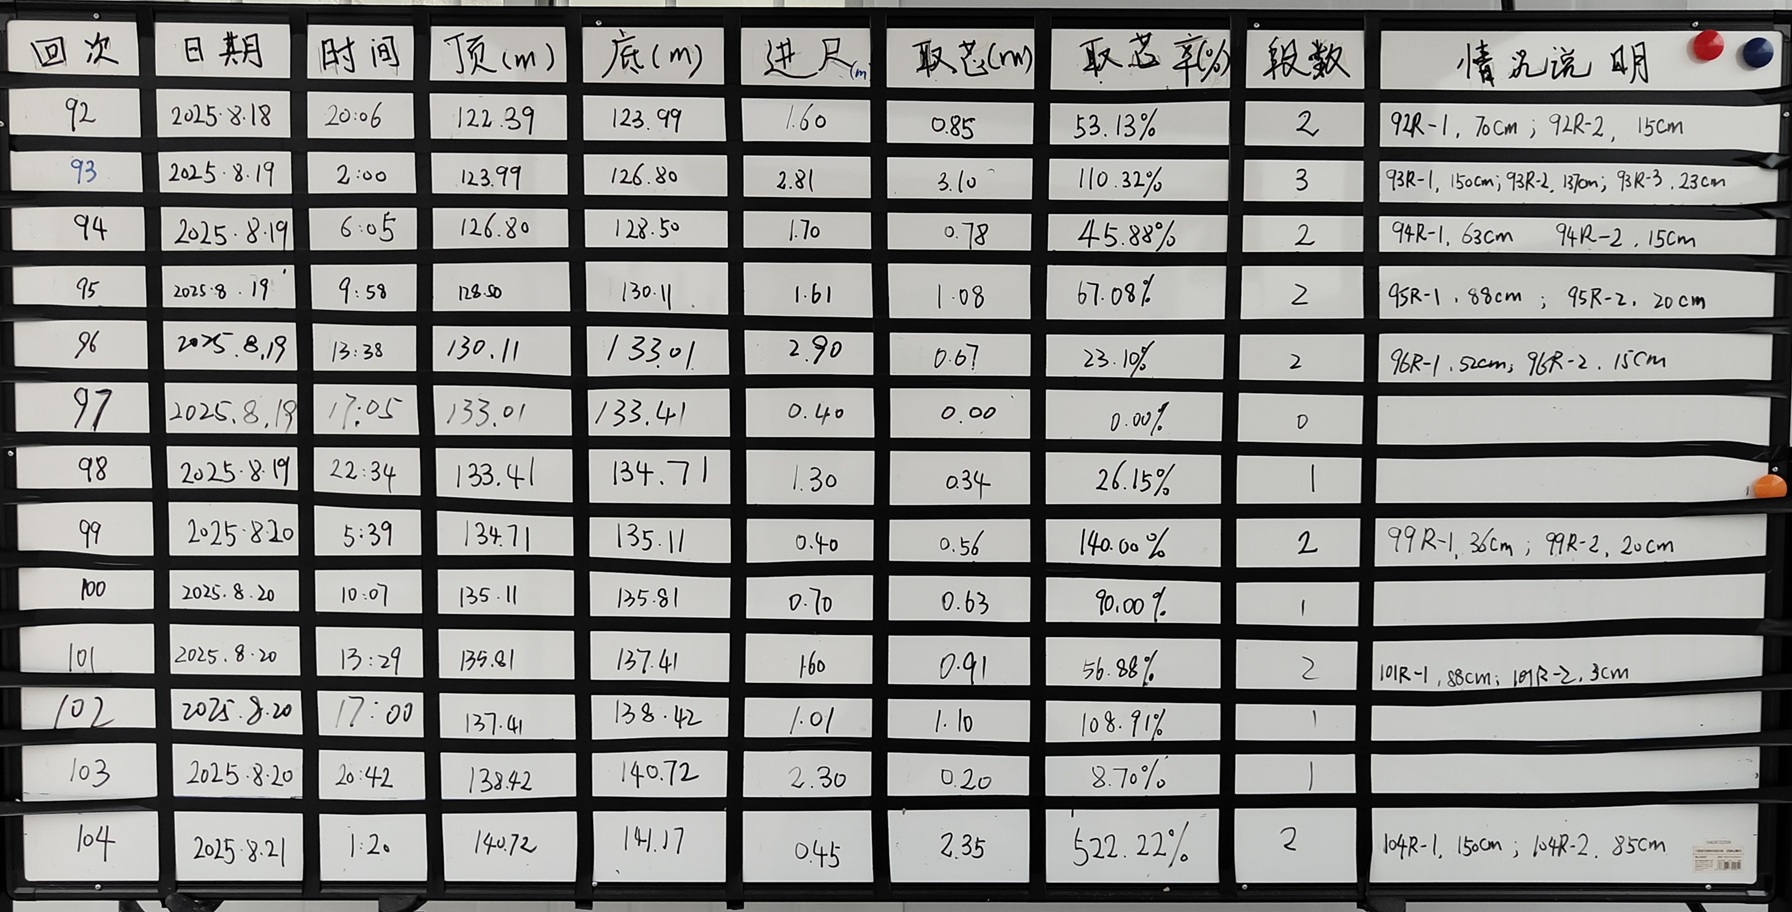 回次 日期 时间 顶(m) 底(m) 进尺(m) 取芯(m) 取芯率(%) 段数 情况说明
92 2025.8.18 20:06 122.39 123.99 1.60 0.85 53.13% 2 92R-1, 70cm; 92R-2, 15cm
93 2025.8.19 2:00 123.99 126.80 2.81 3.10 110.32% 3 93R-1, 150cm; 93R-2, 137cm; 93R-3, 23cm
94 2025.8.19 6:05 126.80 128.50 1.70 0.78 45.88% 2 94R-1, 63cm 94R-2, 15cm
95 2025.8.19 9:58 128.50 130.11 1.61 1.08 67.08% 2 95R-1, 88cm; 95R-2, 20cm
96 2025.8.19 13:38 130.11 133.01 2.90 0.67 23.10% 2 96R-1, 52cm; 96R-2, 15cm
97 2025.8.19 17:05 133.01 133.41 0.40 0.00 0.00% 0
98 2025.8.19 22:34 133.41 134.71 1.30 0.34 26.15% 1
99 2025.8.20 5:39 134.71 135.11 0.40 0.56 140.00% 2 99R-1, 36cm; 99R-2, 20cm
100 2025.8.20 10:07 135.11 135.81 0.70 0.63 90.00% 1
101 2025.8.20 13:29 135.81 137.41 1.60 0.91 56.88% 2 101R-1, 88cm; 101R-2, 3cm
102 2025.8.20 17:00 137.41 138.42 1.01 1.10 108.91% 1
103 2025.8.20 20:42 138.42 140.72 2.30 0.20 8.70% 1
104 2025.8.21 1:20 140.72 141.17 0.45 2.35 522.22% 2 104R-1, 150cm; 104R-2, 85cm